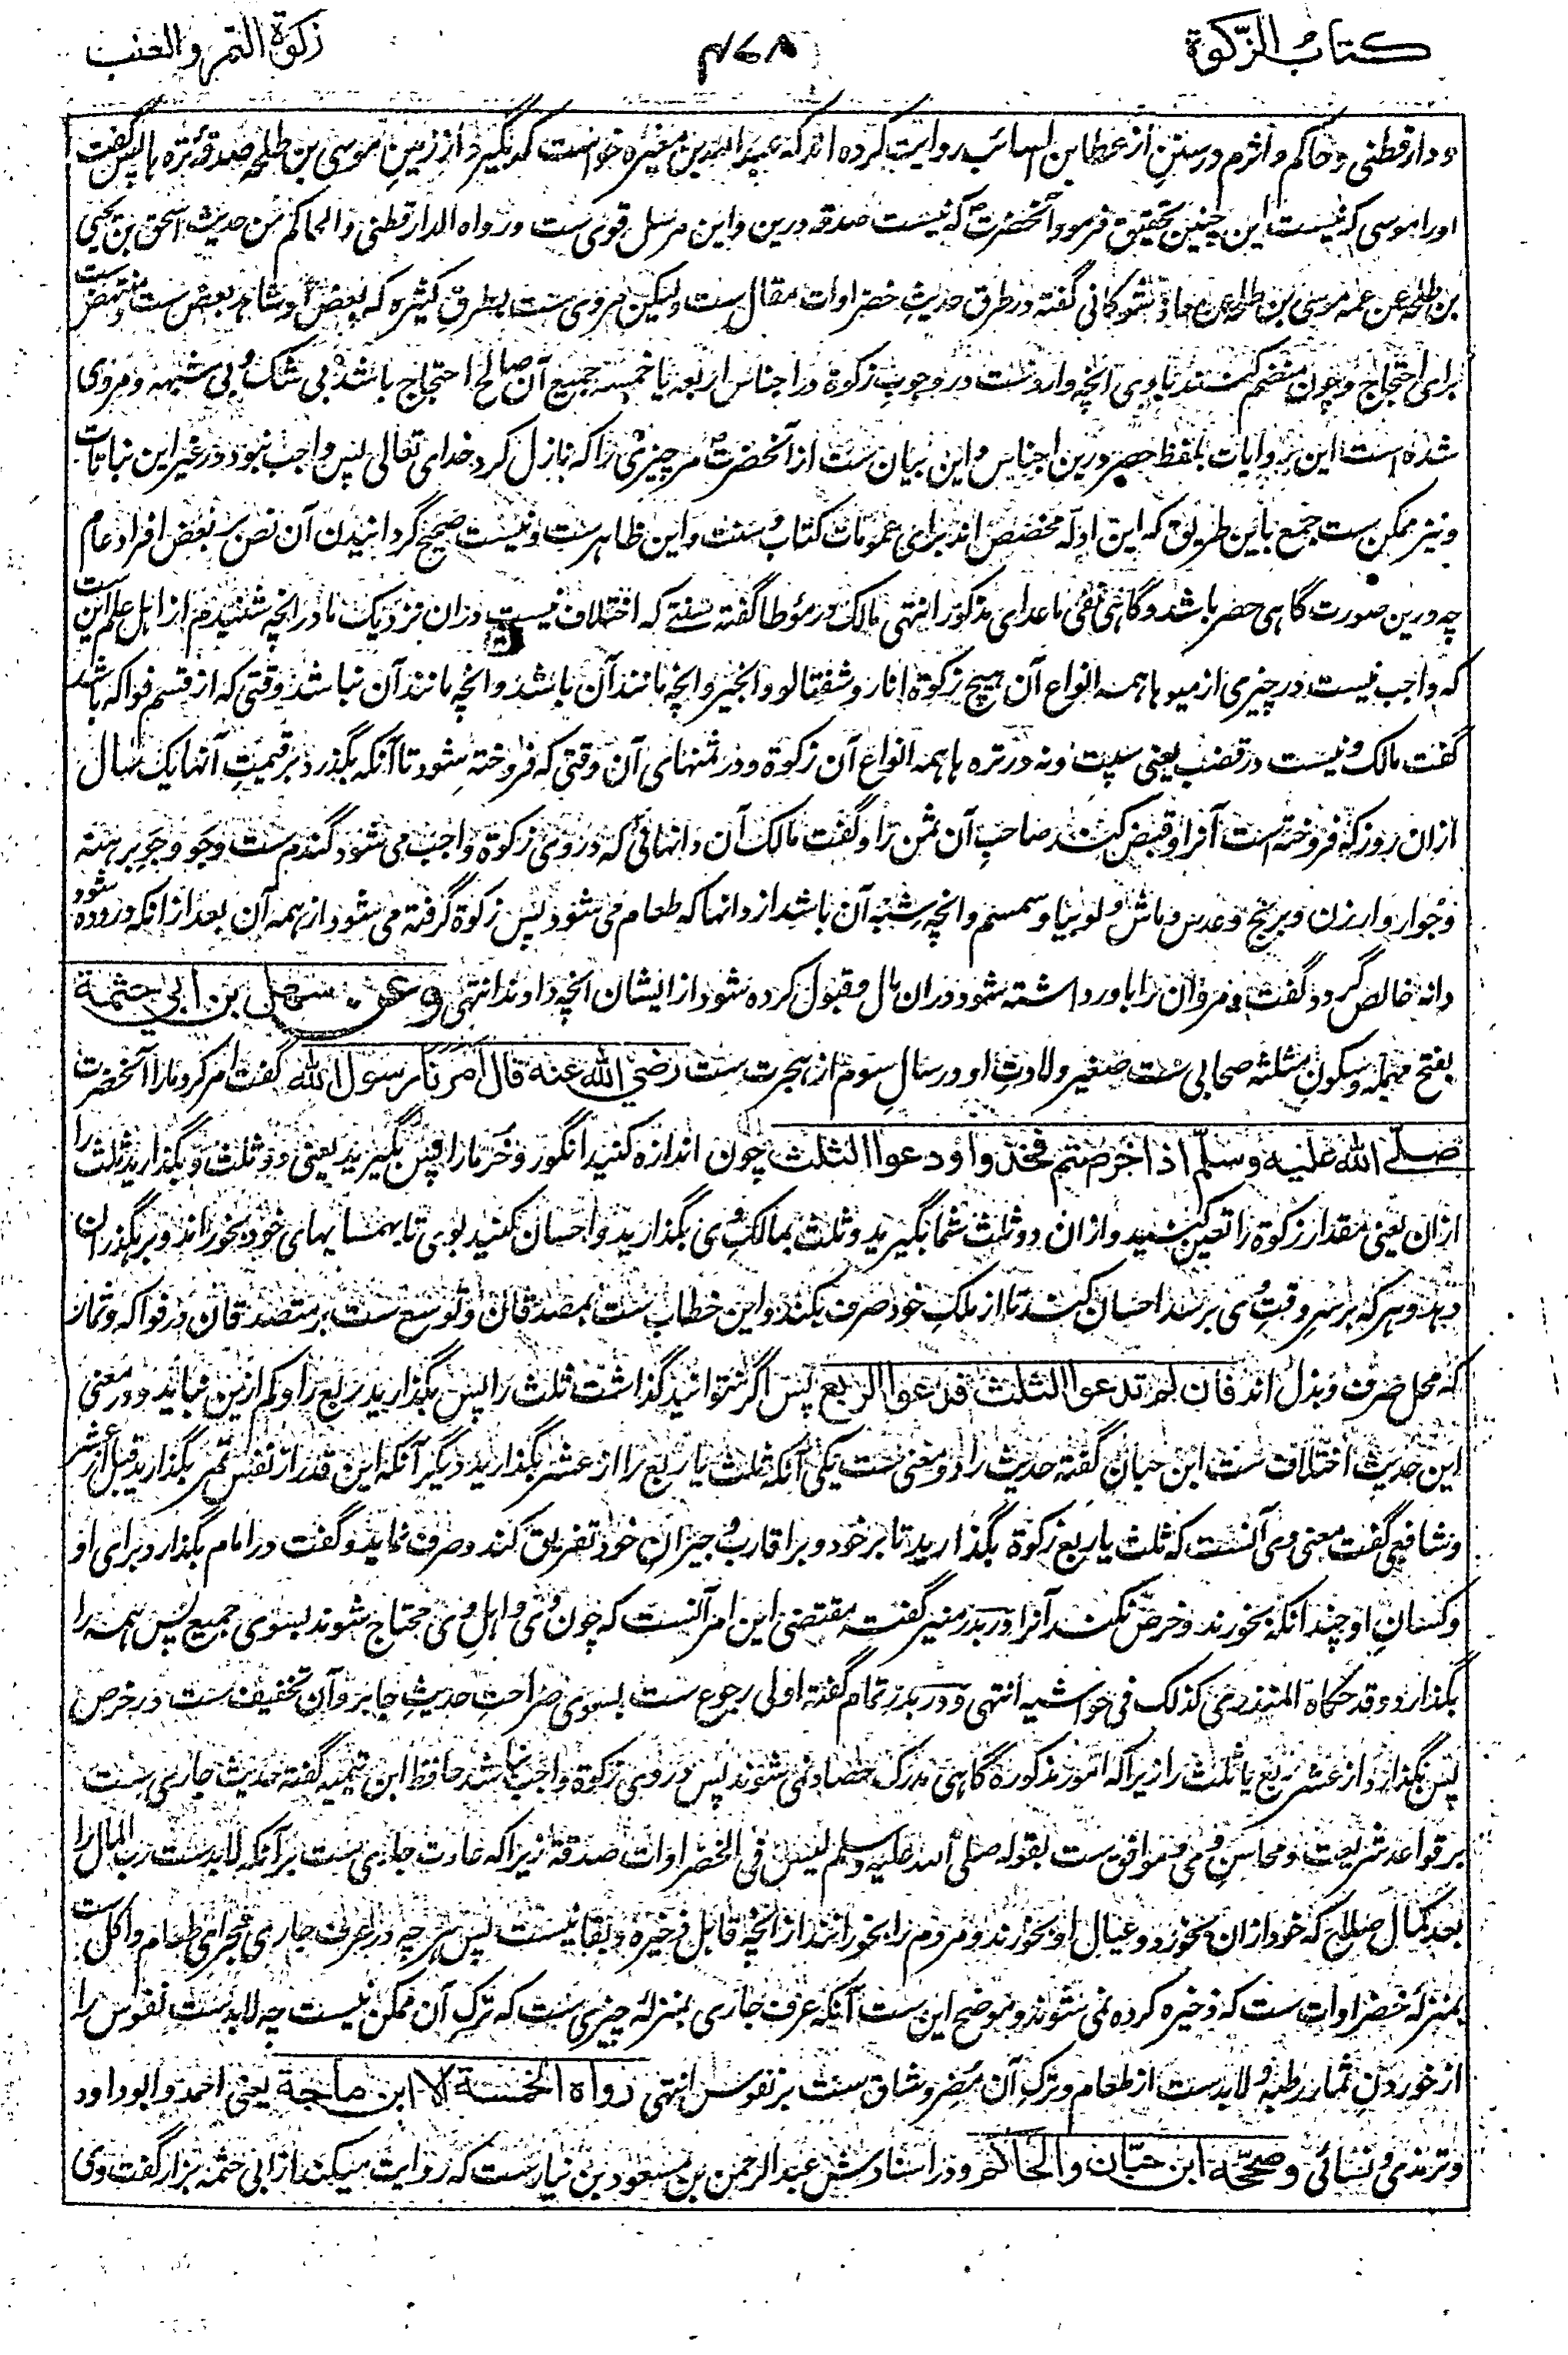 کتاب الزّکوة
۴۶۸
زکوة التمر والعنب
و دارقطنی و حاکم و اثرم در سنن از عطا بن السائب روایت کرده اند که عبد الله بن مغیره خواست که بگیرد از زمین موسی بن طلحه صدقهٔ تره ها پس گفت
اورا موسی که نیست این چنین بتحقیق فرمود آنحضرت که نیست صدقه درین و این مرسل قوی ست و رواه الدارقطنی و الحاکم من حدیث اسحق بن یحیی
بن طلحه عن عمه موسی بن طلحه عن معاذ شوکانی گفته در طرق حدیث خضراوات مقال ست ولیکن مروی ست بطرق کثیره که بعض او شاهد بعض ست و منتهض ست
برای احتجاج و چون منضم کنند باوی آنچه وارد ست در وجوب زکوة در اجناس اربعه یا خمسه جمیع آن صالح احتجاج باشد بی شک و بی شبهه و مروی
شده است این روایات بلفظ حصر درین اجناس و این بیان ست از آنحضرت مر چیزی را که نازل کرد خدای تعالی پس واجب نبود در غیر این نباتات
و نیز ممکن ست جمع باین طریق که این ادله مخصص اند برای عمومات کتاب و سنت و این ظاهر ست و نیست صحیح گردانیدن آن نص بر بعض افراد عام
چه درین صورت گاهی حصر باشد و گاهی نفی ماعدای مذکور انتهی مالک در مؤطا گفته سنتے که اختلاف نیست دران نزدیک ما در آنچه شنیدم از اهل علم این ست
که واجب نیست در چیزی از میوها همه انواع آن هیچ زکوة انار و شفتالو و انجیر و آنچه مانند آن باشد و آنچه مانند آن نباشد وقتی که از قسم فواکه باشد
گفت مالک و نیست در قضب یعنی سپست و نه در تره ها همه انواع آن زکوة و در ثمنهای آن وقتی که فروخته شود تا آنکه بگذرد بر قیمت آنها یک سال
ازان روز که فروخته است آنرا و قبض کند صاحب آن ثمن را و گفت مالک آن دانهائی که دروی زکوة واجب می شود گندم ست و جو و جو برهنه
و جوار و ارزن و برنج و عدس و ماش و لوبیا و سمسم و آنچه شبه آن باشد از دانها که طعام می شود پس زکوة گرفته می شود از همه آن بعد ازانکه دروده شود
دانه خالص گردد گفت و مردان را باور داشته شود دران مال و مقبول کرده شود از ایشان آنچه داوند انتهی وعن سهل بن ابی حثمة
بفتح مهمله و سکون مثلثه صحابی ست صغیر ولادت او در سال سوم از هجرت ست رضی الله عنه قال امرنا رسول الله گفت امر کرد مارا آنحضرت
صلّی الله علیه وسلّم اذا خرصتم فخذوا ودعوا الثلث چون اندازه کنید انگور و خرما را پس بگیرید یعنی دو ثلث و بگذارید ثلث را
ازان یعنی مقدار زکوة را تعین کنید و ازان دو ثلث شما بگیرید و ثلث بمالک وی بگذارید و احسان کنید بوی تا بهمسایهای خود بخوراند و بر گذران
دهد و هر که بر سر وقت وی برسد احسان کند تا از ملک خود صرف بکند و این خطاب ست بمصدقان و توسیع ست بر متصدقان در فواکه و ثمار
که محل صرف و بذل اند فان لم تدعوا الثلث فدعوا الربع پس اگر نتوانید گذاشت ثلث را پس بگذارید ربع را و کم ازین نباید و در معنی
این حدیث اختلاف ست ابن حبان گفته حدیث را دو معنی ست یکی آنکه ثلث یا ربع را از عشر بگذارید دیگر آنکه این قدر از نفس ثمر بگذارید قبل از عشر
و شافعی گفت معنی وی آنست که ثلث یا ربع زکوة بگذارید تا بر خود و بر اقارب و جیران خود تفریق کند و صرف نماید و گفت در امام بگذارد برای او
و کسان او چندانکه بخورند و خرص نکند آنرا و در بدر منیر گفته مقتضی این امر آنست که چون وی و اهل وی محتاج شوند بسوی جمیع پس همه را
بگذارد و قد حکاه المنذری کذلک فی حواشیه انتهی و در بدر تمام گفته اولی رجوع ست بسوی صراحت حدیث جابر و آن تخفیف ست در خرص
پس بگذارد از عشر ربع یا ثلث را زیراکه امور مذکوره گاهی مدرک حصاد نمی شوند پس دروی زکوة واجب نباشد حافظ ابن تیمیه گفته حدیث جاری ست
بر قواعد شریعت و محاسن وی و موافق ست بقوله صلی الله علیه وسلم لیس فی الخضراوات صدقة زیراکه عادت جاری ست بر آنکه لابدست رب المال را
بعد کمال صلاح که خود ازان بخورد و عیال او بخورند و مردم را بخورانند از آنچه قابل ذخیره و بقا نیست پس هر چه در عرف جاری مجرای طعام و اکل ست
بمنزلهٔ خضراوات ست که ذخیره کرده نمی شوند و موضح این ست آنکه عرف جاری بمنزلهٔ چیزی ست که ترک آن ممکن نیست چه لابدست نفوس را
از خوردن ثمار رطبه و لابدست از طعام و ترک آن مضر و شاق ست بر نفوس انتهی رواه الخمسة الا ابن ماجة یعنی احمد و ابو داود
و ترمذی و نسائی وصححه ابن حبّان والحاکم و در اسنادش عبد الرحمن بن مسعود بن نیار ست که روایت میکند از ابی حثمه بزار گفت وی